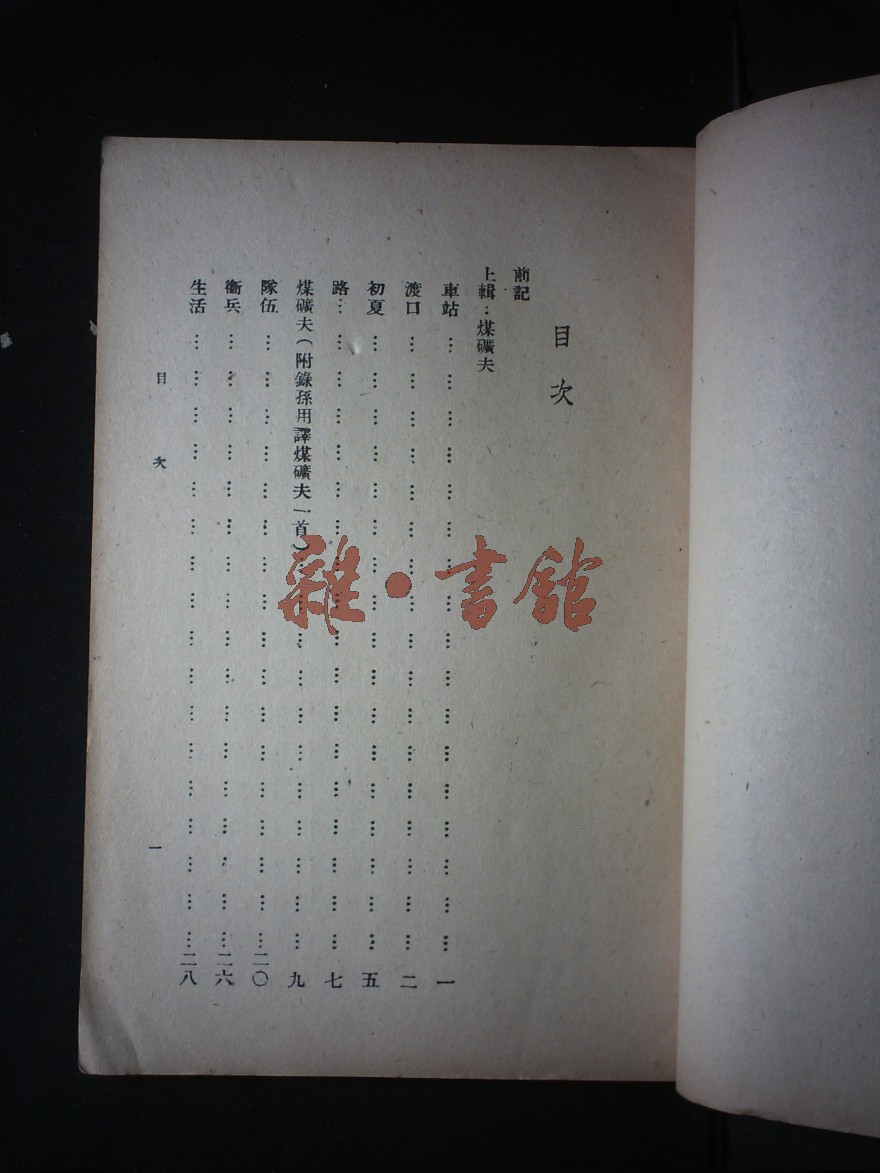 目次
前記
上輯：煤礦夫
車站………………………………………………一
渡口………………………………………………二
初夏………………………………………………五
路…………………………………………………七
煤礦夫（附錄孫用譯煤礦夫一首）……………九
隊伍………………………………………………二〇
衞兵………………………………………………二六
生活………………………………………………二八
目次
一
雜·書館